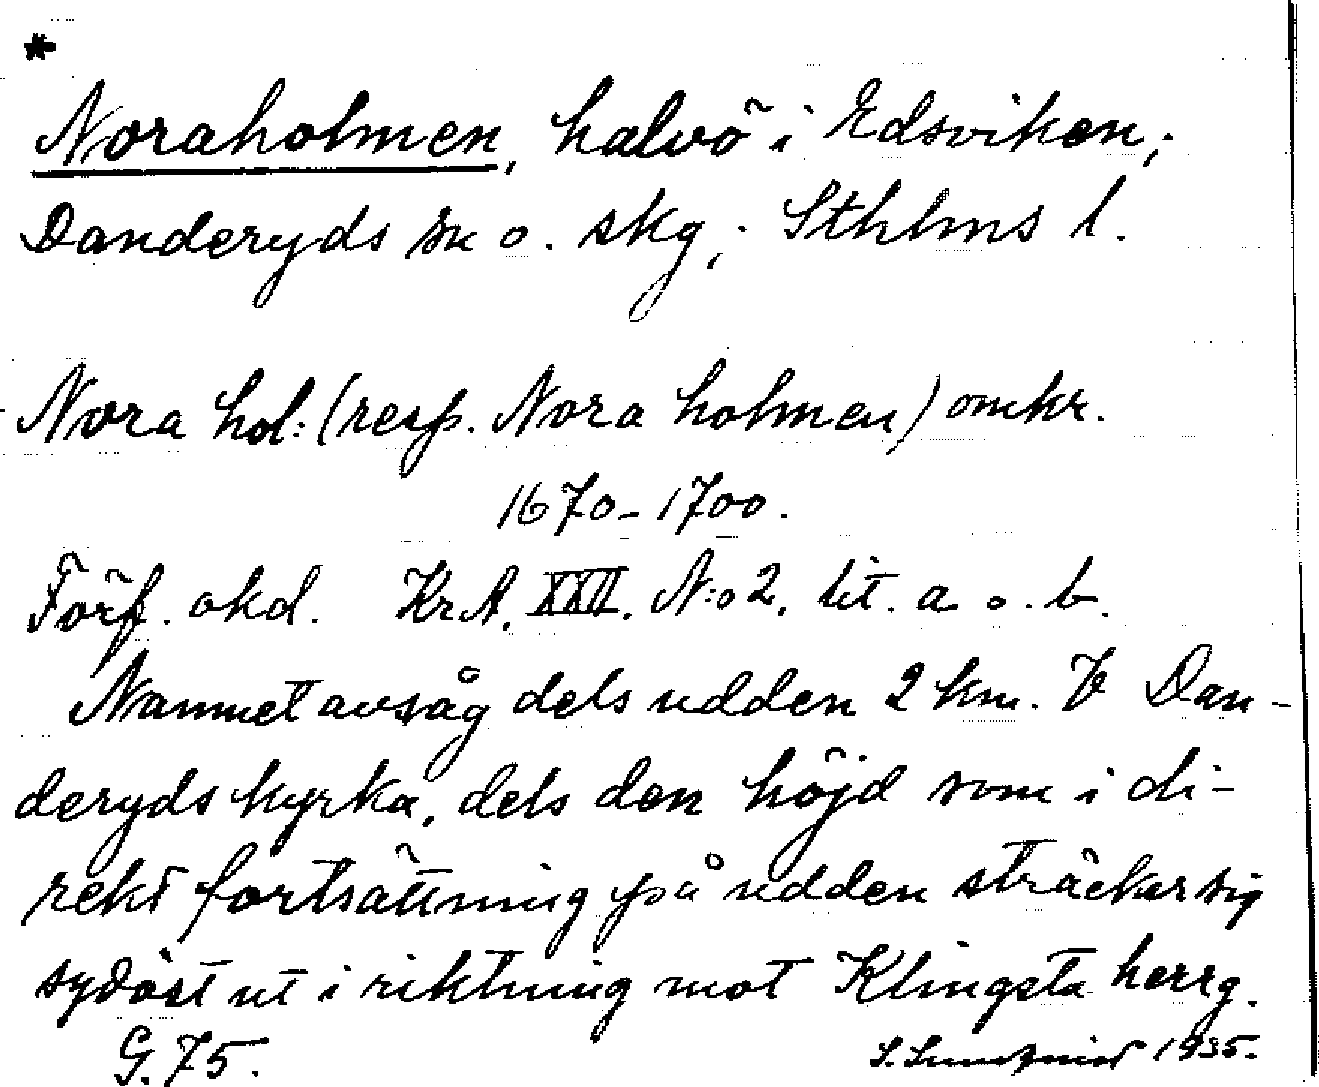 *
Noraholmen, halvö i Edsviken,
Danderyds sn o. skg, Sthlms l.
Nora hol: (resp. Nora holmen) omkr.
1670-1700.
Förf. okd. KrA. XXII. N:o 2. lit. a o. b.
Namnet avsåg dels udden 2 km. V Dan-
deryds kyrka, dels den höjd som i di-
rekt fortsättning på udden sträcker sig
sydöst ut i riktning mot Klingsta herrg.
G. 75. S. 1935.